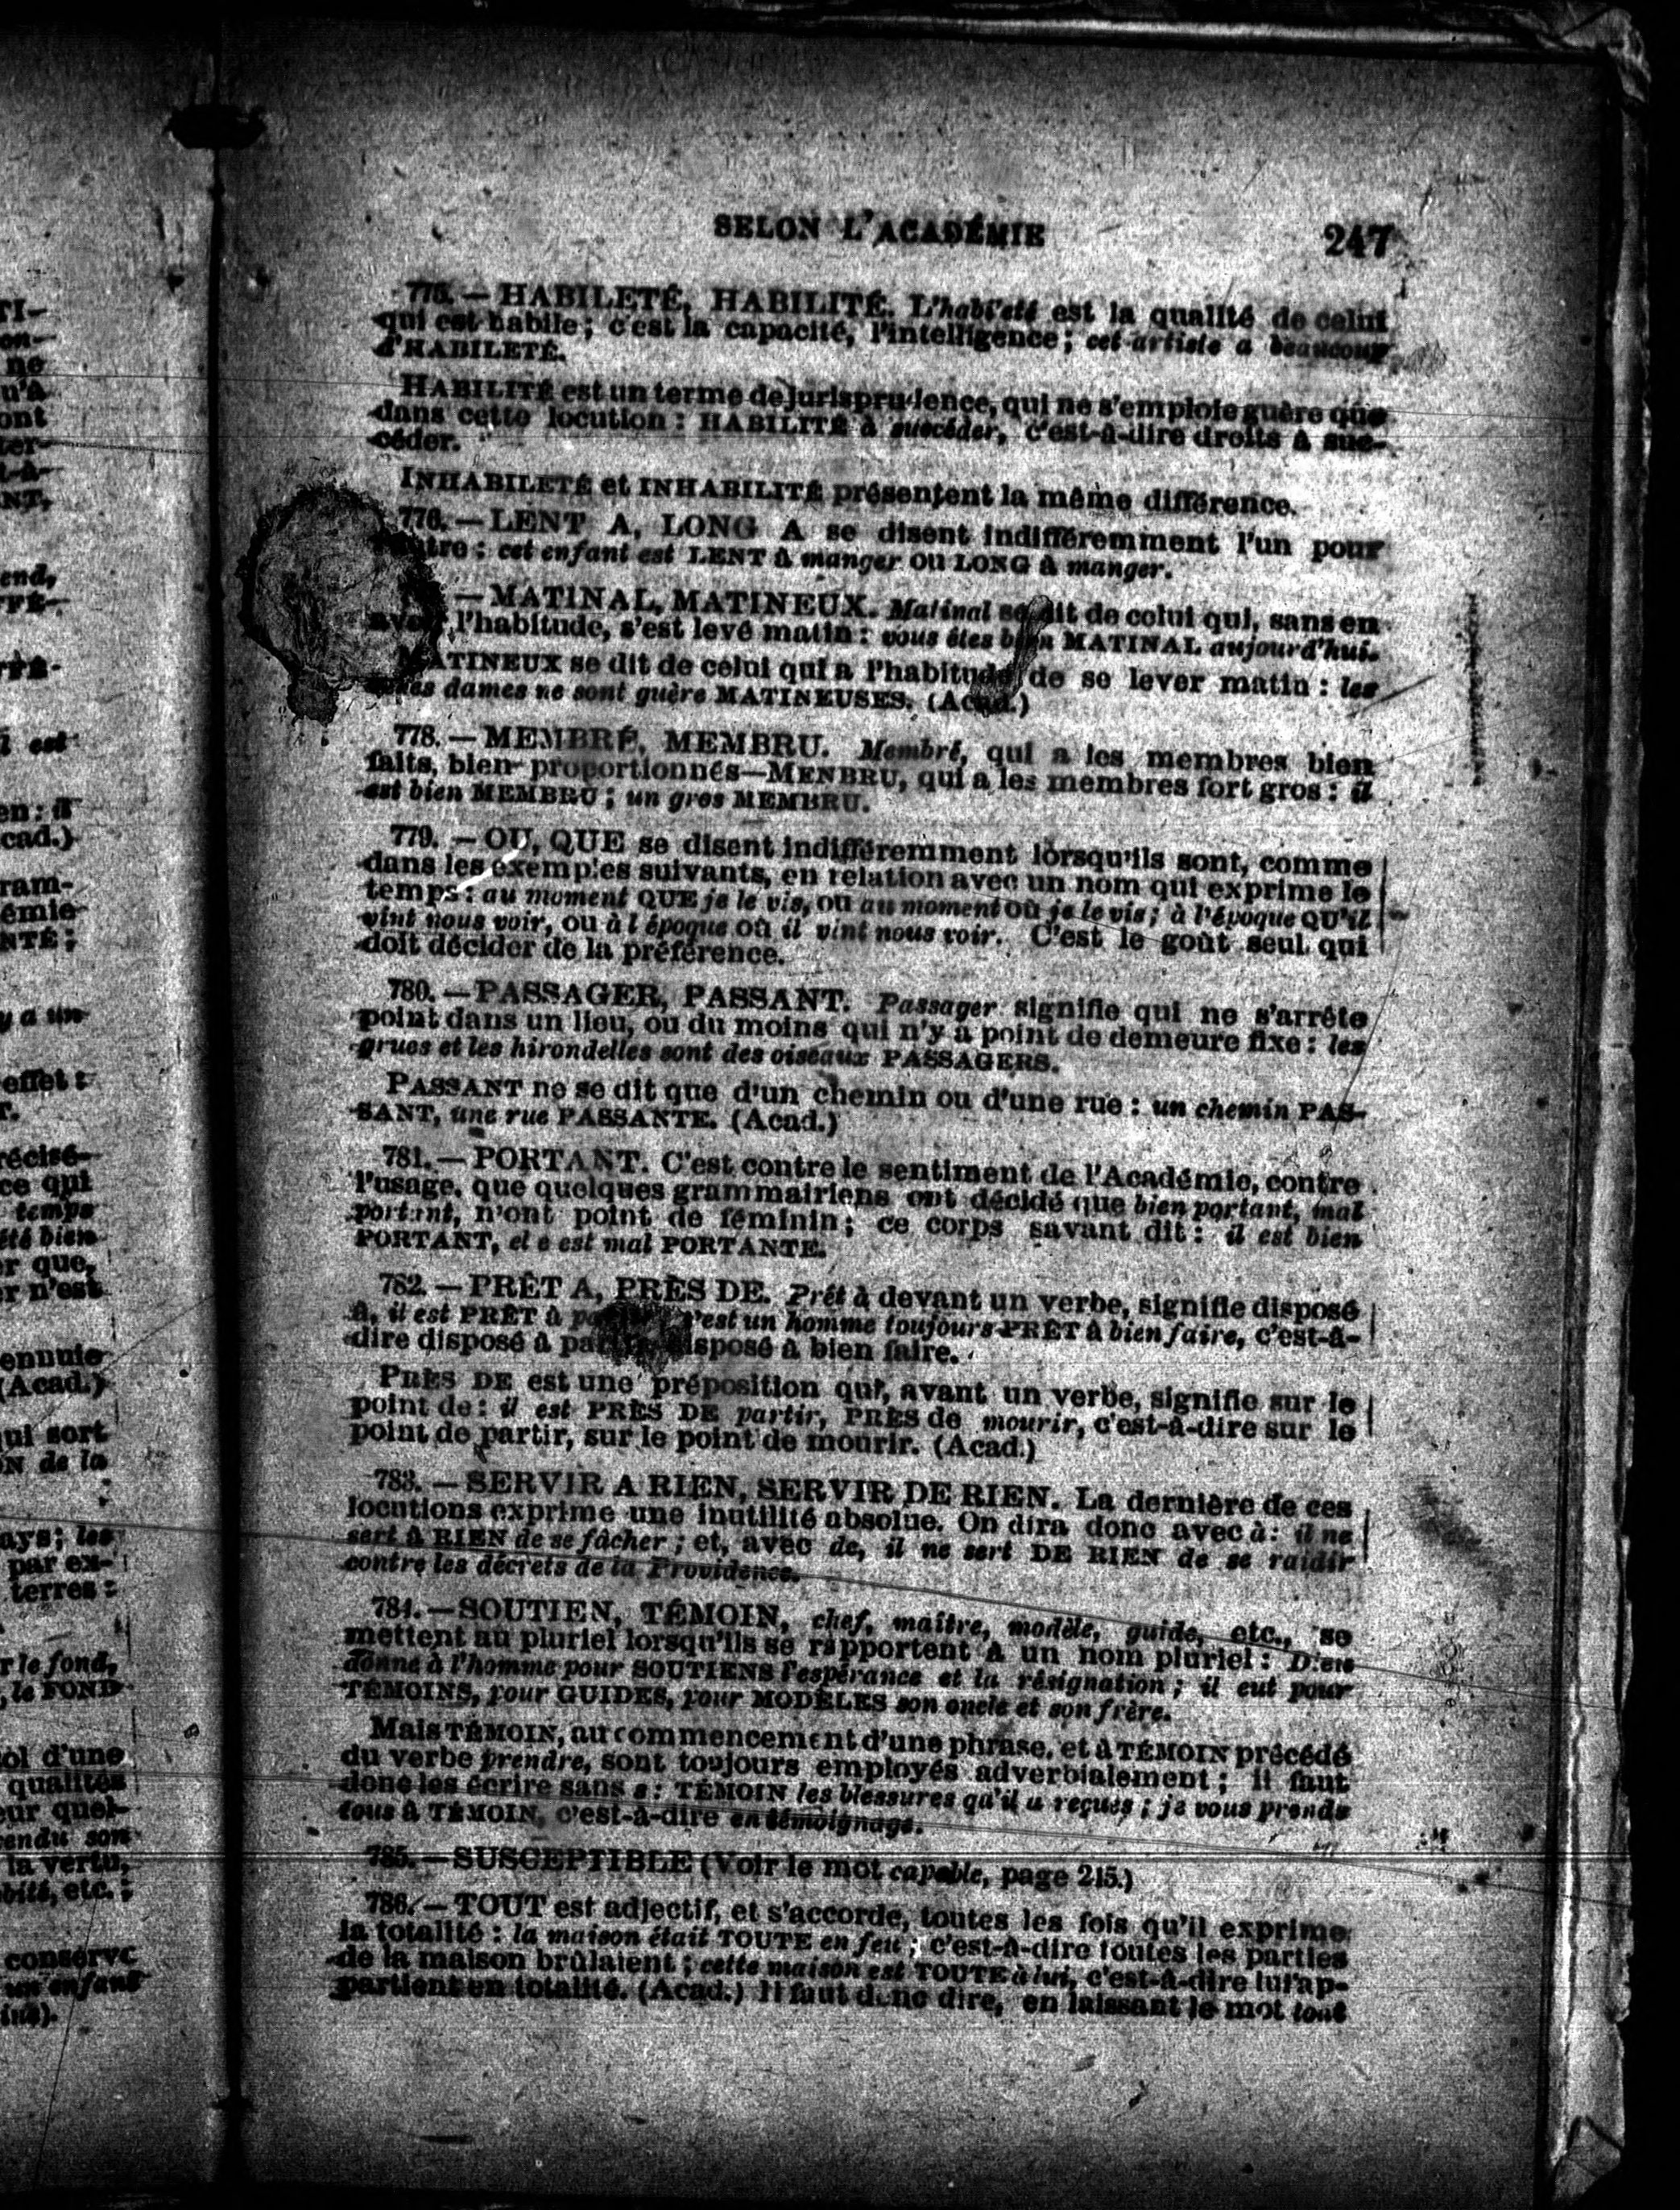 TI-
ne
qu'à
ont
ter-
t-à-
NT,
end,
FFÉ-
il est
en : il
cad.)
ram-
émie
NTÉ ;
y a un
effet :
T.
récisé-
ce qui
temps
été bien
er que,
er n'est
ennuie
(Acad.)
qui sort
ON de la
;
ays ; les
par ex-
terres :
r le fond,
, le FOND
sol d'une
qualités
eur quel-
rendu son
la vertu,
etc. ;
conserve
un enfant
SELON L'ACADÉMIE 247
775. — HABILETÉ, HABILITÉ. L'habileté est la qualité de celui
qui est habile ; c'est la capacité, l'intelligence ; cet artiste a beaucoup
d'HABILETÉ.
HABILITÉ est un terme de jurisprudence, qui ne s'emploie guère que
dans cette locution : HABILITÉ à succéder, c'est-à-dire droits à suc-
céder.
INHABILETÉ et INHABILITÉ présentent la même différence.
776. — LENT A, LONG A se disent indifféremment l'un pour
: cet enfant est LENT à manger OU LONG à manger.
— MATINAL, MATINEUX. Matinal se dit de celui qui, sans en
avoir l'habitude, s'est levé matin : vous êtes bien MATINAL aujourd'hui.
MATINEUX se dit de celui qui a l'habitude de se lever matin : les
dames ne sont guère MATINEUSES. (Acad.)
778. — MEMBRÉ, MEMBRU. Membré, qui a les membres bien
faits, bien proportionnés—MENBRU, qui a les membres fort gros : il
est bien MEMBRU ; un gros MEMBRU.
779. — OU, QUE se disent indifféremment lorsqu'ils sont, comme
dans les exemples suivants, en relation avec un nom qui exprime le
temps : au moment QUE je le vis, ou au moment OÙ je le vis ; à l'époque QU'il
vint nous voir, ou à l époque où il vint nous voir. C'est le goût seul qui
doit décider de la préférence.
780. — PASSAGER, PASSANT. Passager signifie qui ne s'arrête
point dans un lieu, ou du moins qui n'y a point de demeure fixe : les
grues et les hirondelles sont des oiseaux PASSAGERS.
PASSANT ne se dit que d'un chemin ou d'une rue : un chemin PAS-
SANT, une rue PASSANTE. (Acad.)
781. — PORTANT. C'est contre le sentiment de l'Académie, contre
l'usage, que quelques grammairiens ont décidé que bien portant, mal
portant, n'ont point de féminin ; ce corps savant dit : il est bien
PORTANT, el e est mal PORTANTE.
782. — PRÊT A, PRÈS DE. Prêt à devant un verbe, signifie disposé
à, il est PRÊT à c'est un homme toujours PRÊT à bien faire, c'est-à-
dire disposé à partir, disposé à bien faire.
PRÈS DE est une préposition qui, avant un verbe, signifie sur le
point de : il est PRÈS DE partir, PRÈS de mourir, c'est-à-dire sur le
point de partir, sur le point de mourir. (Acad.)
783. — SERVIR A RIEN, SERVIR DE RIEN. La dernière de ces
locutions exprime une inutilité absolue. On dira donc avec à : il ne
sert à RIEN de se fâcher ; et, avec de, il ne sert DE RIEN de se raidir
contre les décrets de la Providence.
784. — SOUTIEN, TÉMOIN, chef, maître, modèle, guide, etc., se
mettent au pluriel lorsqu'ils se rapportent à un nom pluriel : Dieu
donne à l'homme pour SOUTIENS l'espérance et la résignation ; il eut pour
TÉMOINS, pour GUIDES, pour MODÈLES son oncle et son frère.
Mais TÉMOIN, au commencement d'une phrase, et à TÉMOIN précédé
du verbe prendre, sont toujours employés adverbialement ; il faut
donc les écrire sans s : TÉMOIN les blessures qu'il a reçues ; je vous prends
tous à TÉMOIN, c'est-à-dire en témoignage.
785. — SUSCEPTIBLE (Voir le mot capable, page 215.)
786. — TOUT est adjectif, et s'accorde, toutes les fois qu'il exprime
la totalité : la maison était TOUTE en feu ; c'est-à-dire toutes les parties
de la maison brûlaient ; cette maison est TOUTE à lui, c'est-à-dire lui ap-
partient en totalité. (Acad.) Il faut donc dire, en laissant le mot tout